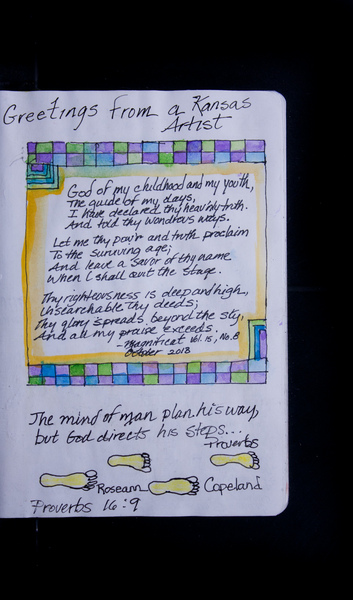 Greetings from a Kansas
Artist
God of my childhood and my youth,
The guide of my days,
I have declared thy heavenly truth.
And told thy wondrous ways.
Let me thy pow'r and truth proclaim
To the surviving age;
And leave a savor of thy name
When I shall quit the stage.
Thy righteousness is deep and high,
Unsearchable thy deeds;
Thy glory spreads beyond the sky,
And all my praise exceeds.
-Magnificat Vol. 15, No. 8
October 2013
The mind of man plan his way,
but God directs his steps...
Proverbs
Roseann Copeland
Proverbs 16:9